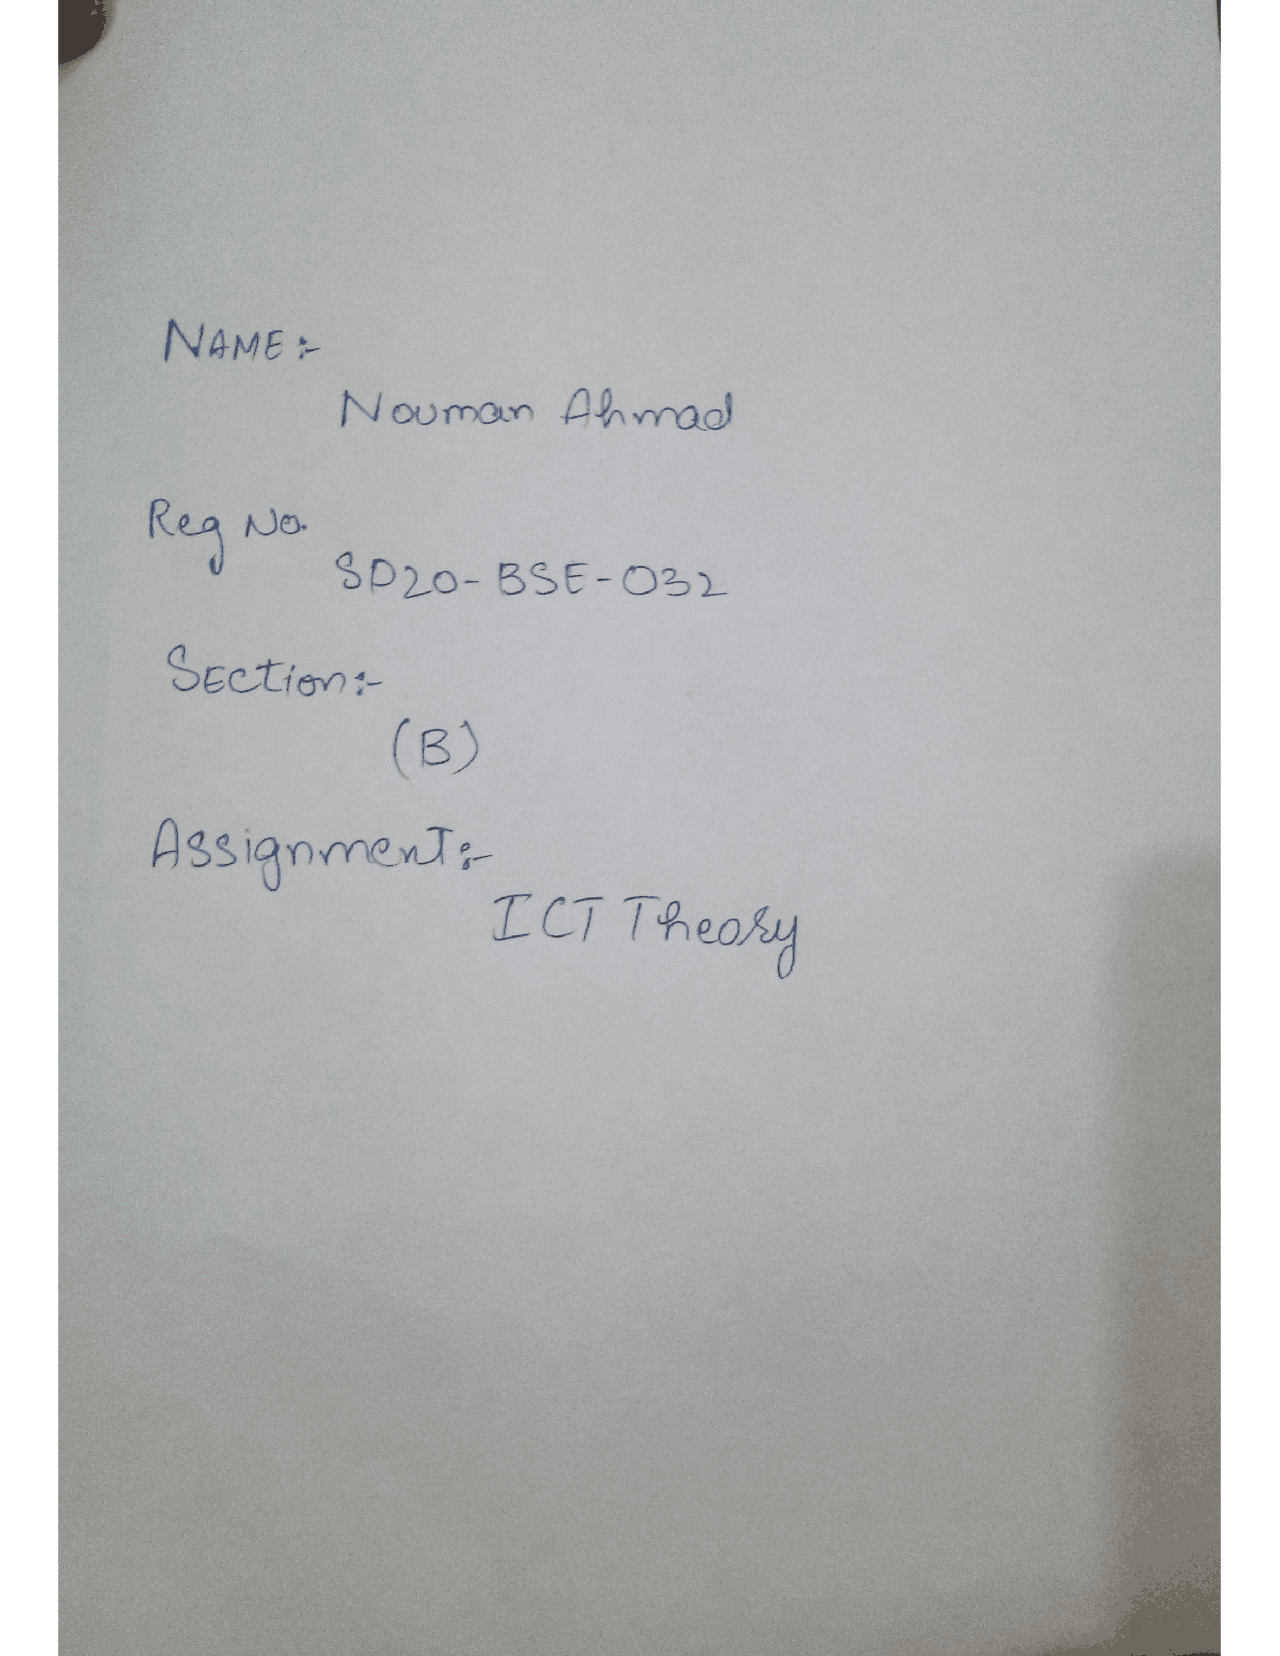 NAME :-
Nouman Ahmad
Reg No.
SP20-BSE-032
SECtion:-
(B)
Assignment:-
ICT Theory